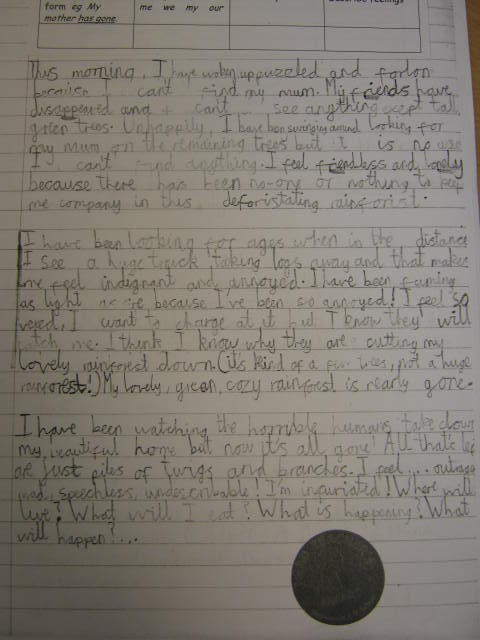 form eg My
mother has gone.
me we my our
describe feelings
This morning, I have woken up puzzeled and forlon
because I can't find my mum. My friends have
disappeared and I can't see anything exept tall,
green trees. Unhappily, I have ben swinging around looking for
my mum, on the remaining trees but it is no use
I can't find anything. I feel friendless and lonely
because there has been no-one or nothing to keep
me company in this deforistating rainforist.
I have been looking for ages when in the distance
I see a huge truck taking logs away and that makes
me feel indignant and annoyed. I have been fuming
as light because I've been so annoyed! I feel so
vexed, I want to charge at it but I know they will
catch me. I think I know why they are cutting my
lovely rainforest down. (it's kind of a few trees, not a huge
rainforest!) My lovely, green, cozy rainforest is nearly gone.
I have been watching the horrible humans take down
my beautiful home but now it's all gone! All that's left
are just piles of twigs and branches. I feel...
mad, speechless, undescribable! I'm infuriated! Where will
live? What will I eat? What is happening? What
will happen?...